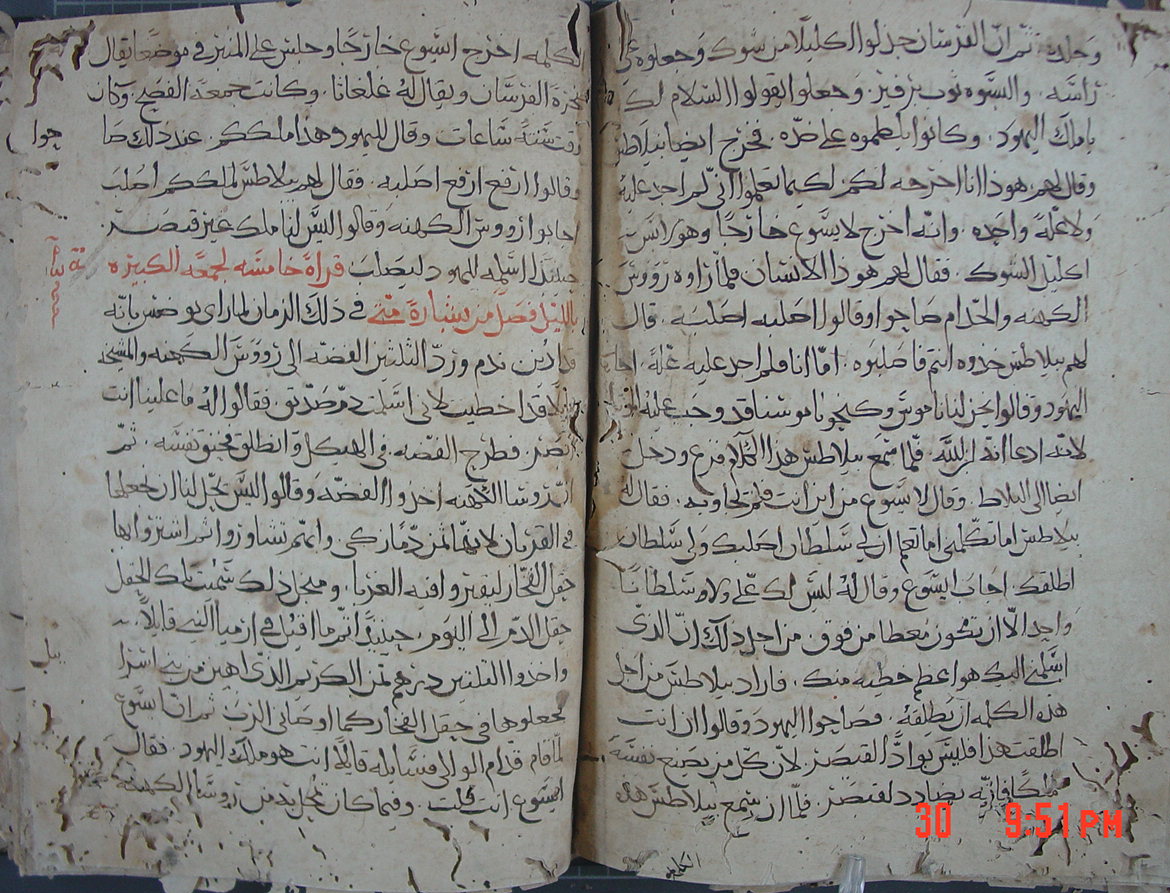 وجلده. ثم ان الفرسان جدلوا اكليلا من شوك وجعلوه على
راسه. والبسوه ثوب برفير. وجعلوا يقولوا السلام لك
يا ملك اليهود. وكانوا يلطموه على خده. فخرج ايضا بيلاطس
وقال لهم هوذا انا اخرجه لكم لكيما تعلموا انى لم اجد عليه
ولا علة واحده. وانه اخرج لايسوع خارجا وهو لابس
اكليل الشوك. فقال لهم هوذا الانسان فلما راوه رووس
الكهنه والخدام صاحوا وقالوا اصلبه اصلبه. قال
لهم بيلاطس خذوه انتم فاصلبوه. اما انا فلم اجد عليه علة. اجابه
اليهود وقالوا نحن لنا ناموس وكنحو ناموسنا قد وجب عليه الموت
لانه ادعا انه ابن الله. فلما سمع بيلاطس هذا الكلام فزع ودخل
ايضا الى البلاط. وقال لايسوع من اين انت فلم يجاوبه. فقال له
بيلاطس اما تكلمني اما تعلم ان لي سلطان اصلبك ولي سلطان
اطلقك. اجاب ايسوع وقال له ليس لك علي ولا سلطانا
واحد الا ان تكون معطا من فوق. من اجل ذلك ان الذى
اسلمني اليك هو اعظم خطيه منك. فاراد بيلاطس من اجل
هذه الكلمه ان يطلقه. فصاحوا اليهود وقالوا ان انت
اطلقت هذا فليس بوادا لقيصر. لان كل من يصنع نفسه
ملكا فانه يضادد لقيصر. فلما ان سمع بيلاطس هذه
الكلمه
الكلمه اخرج ايسوع خارجا وجلس على المنبر في موضعا يقال
له الفرسان ويقال له غلغاثا. وكانت جمعة الفصح. وكان
وقت ستة ساعات وقال لليهود هذا ملككم. عند ذلك صا
حوا
وقالوا ارفع ارفع اصلبه. فقال لهم بيلاطس لملككم اصلب
اجابوا رووس الكهنه وقالوا ليس لنا ملك غير قيصر.
حينئذ اسلمه لليهود ليصلب قراة خامسه لجمعه الكبيره
بالليل فصل من بشارة متى في ذلك الزمان لما راى يوضس بانه
قد ادين ندم ورد الثلثين الفضه الى رووس الكهنه والمشيخه
قد اخطيت لانى اسلمت دم صديق. فقالوا له ما علينا انت
تبصر. فطرح الفضه في الهيكل وانطلق فخنق نفسه. ثم
الكهنه اخذوا الفضه وقالوا ليس يحل لنا ان نجعلها
في القربان لانها ثمن دم زكى. وانهم تشاوروا ثم اشتروا بها
حقل الفخار ليقبروا فيه الغربا. ومن اجل ذلك سميت تلك الحقل
حقل الدم الى اليوم. حينئذ تم ما قيل في ارميا النبي قايلا.
واخذوا الثلثين درهم ثمن الكريم الذى اهين من بني اسرا
ييل
فجعلوها في حقل الفخار كما اوصاني الرب ثم ان ايسوع
لما قام قدام الوالي فسايله قايلا انت هو ملك اليهود. فقال
ايسوع انت قلت. وفيما كان من روسا الكهنه
30 9:51 PM